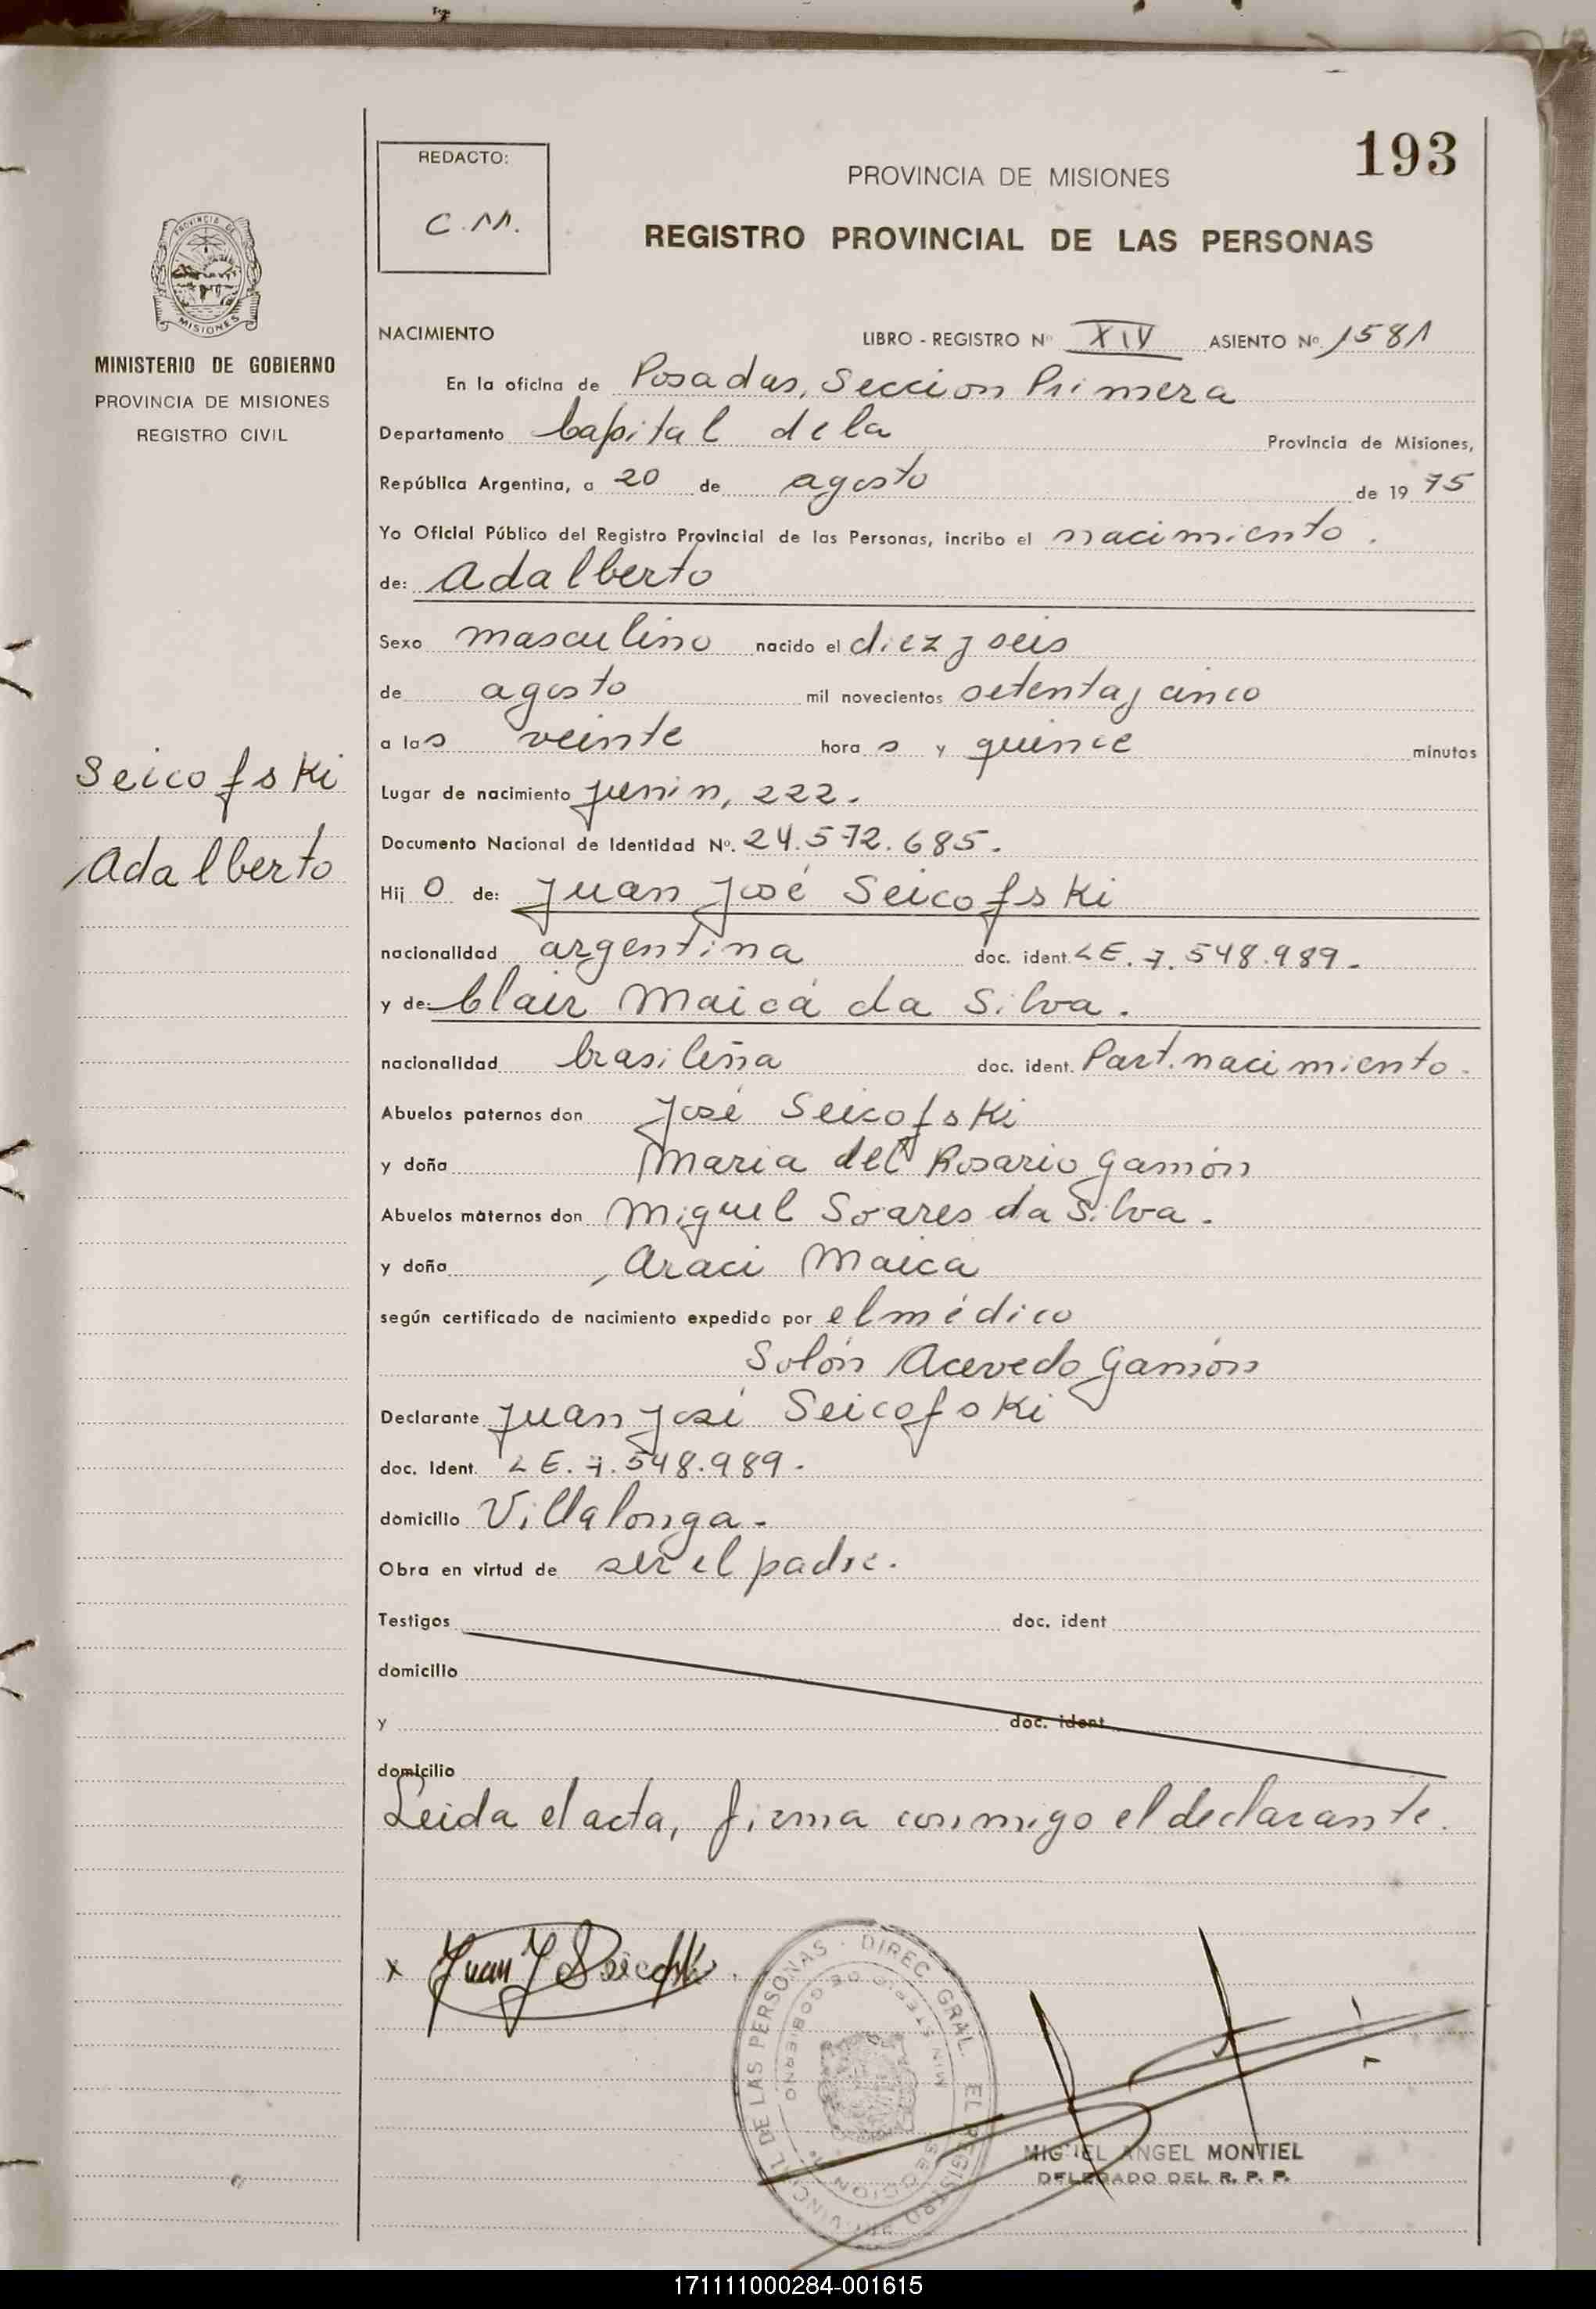 193
REDACTO:
C.M.
PROVINCIA DE MISIONES
REGISTRO PROVINCIAL DE LAS PERSONAS
PROVINCIA DE
MISIONES
MINISTERIO DE GOBIERNO
PROVINCIA DE MISIONES
REGISTRO CIVIL
NACIMIENTO LIBRO - REGISTRO Nº XIV ASIENTO Nº 1581
En la oficina de Posadas, Seccion Primera
Departamento Capital de la Provincia de Misiones,
República Argentina, a 20 de agosto de 1975
Yo Oficial Público del Registro Provincial de las Personas, incribo el nacimiento.
de: Adalberto
Sexo masculino nacido el diez y seis
de agosto mil novecientos setenta y cinco
a las veinte horas y quince minutos
Seicofski
Adalberto
Lugar de nacimiento Junin, 222.
Documento Nacional de Identidad Nº. 24.572.685.
Hijo de: Juan José Seicofski
nacionalidad argentina doc. ident. LE. 7.548.989.
y de: Clair Maicá da Silva.
nacionalidad brasileña doc. ident. Part. nacimiento.
Abuelos paternos don José Seicofski
y doña Maria del Rosario Gamón
Abuelos maternos don Miguel Soares da Silva.
y doña Araci Maica
según certificado de nacimiento expedido por el médico
Solón Acevedo Gamón
Declarante Juan José Seicofski
doc. Ident. LE. 7.548.989.
domicilio Villalonga.
Obra en virtud de ser el padre.
Testigos doc. ident
domicilio
y doc. ident
domicilio
Leida el acta, firma conmigo el declarante.
x Juan J Seicofski
DIREC. GRAL. EL REGISTRO PROVINCIAL DE LAS PERSONAS
MINISTERIO DE GOBIERNO
SECCION
MIGUEL ANGEL MONTIEL
DELEGADO DEL R. P. P.
171111000284-001615